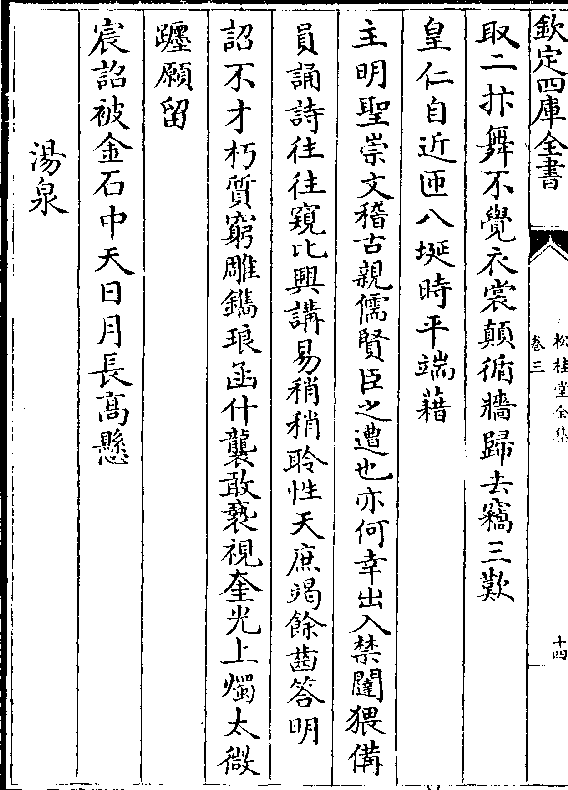 欽定四庫全書
松桂堂全集
卷三
十四
取二抃舞不覺衣裳顛循牆歸去竊三歎
皇仁自近匝八埏時平端藉
主明聖崇文稽古親儒賢臣之遭也亦何幸出入禁闥猥備
員誦詩往往窺比興講易稍稍聆性天庶竭餘齒答明
詔不才朽質窮雕鐫琅函什襲敢褻視奎光上燭太微
躔願留
宸詔被金石中天日月長高懸
湯泉